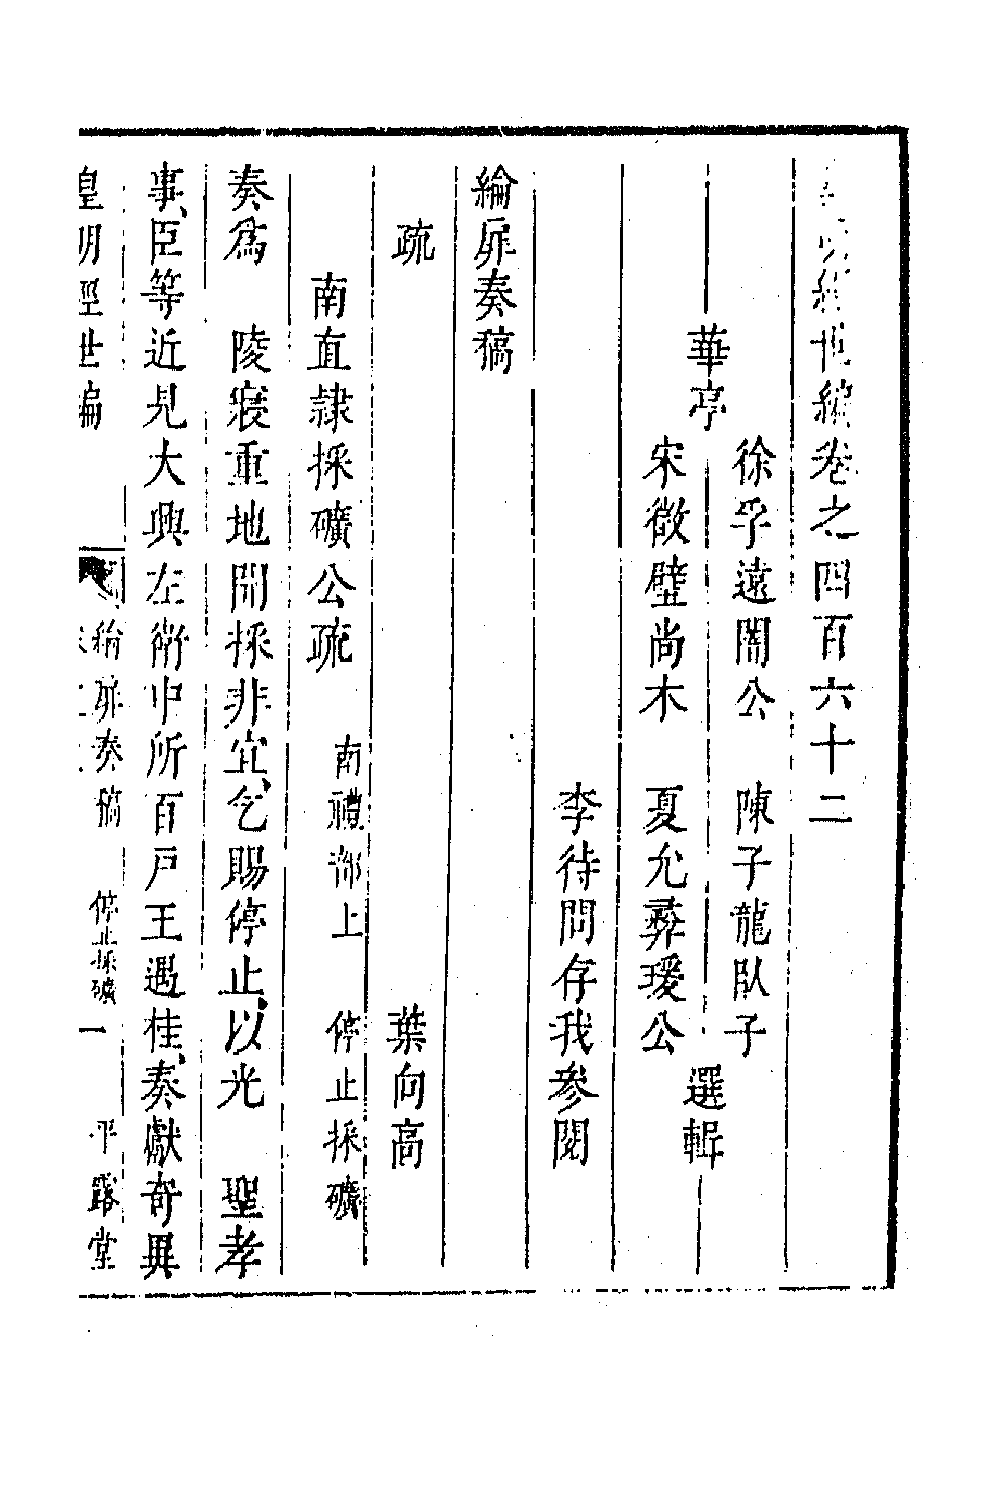 經世編卷之四百六十二
華亭
徐孚遠闇公 陳子龍臥子
宋徵璧尚木 夏允彝瑗公
選輯
李待問存我參閱
綸扉奏稿
疏 葉向高
南直隸採礦公疏 南禮部上 停止採礦
奏爲 陵寢重地開採非宜、乞賜停止、以光 聖孝
事、臣等近見大興左衛中所百戶王遇桂、奏獻奇異
皇明經世編 綸扉奏稿 停止採礦 一 平露堂